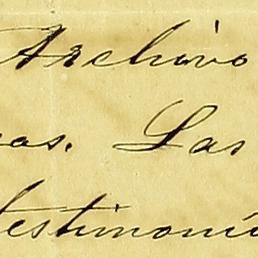 Archivo
as. Las
testimoni